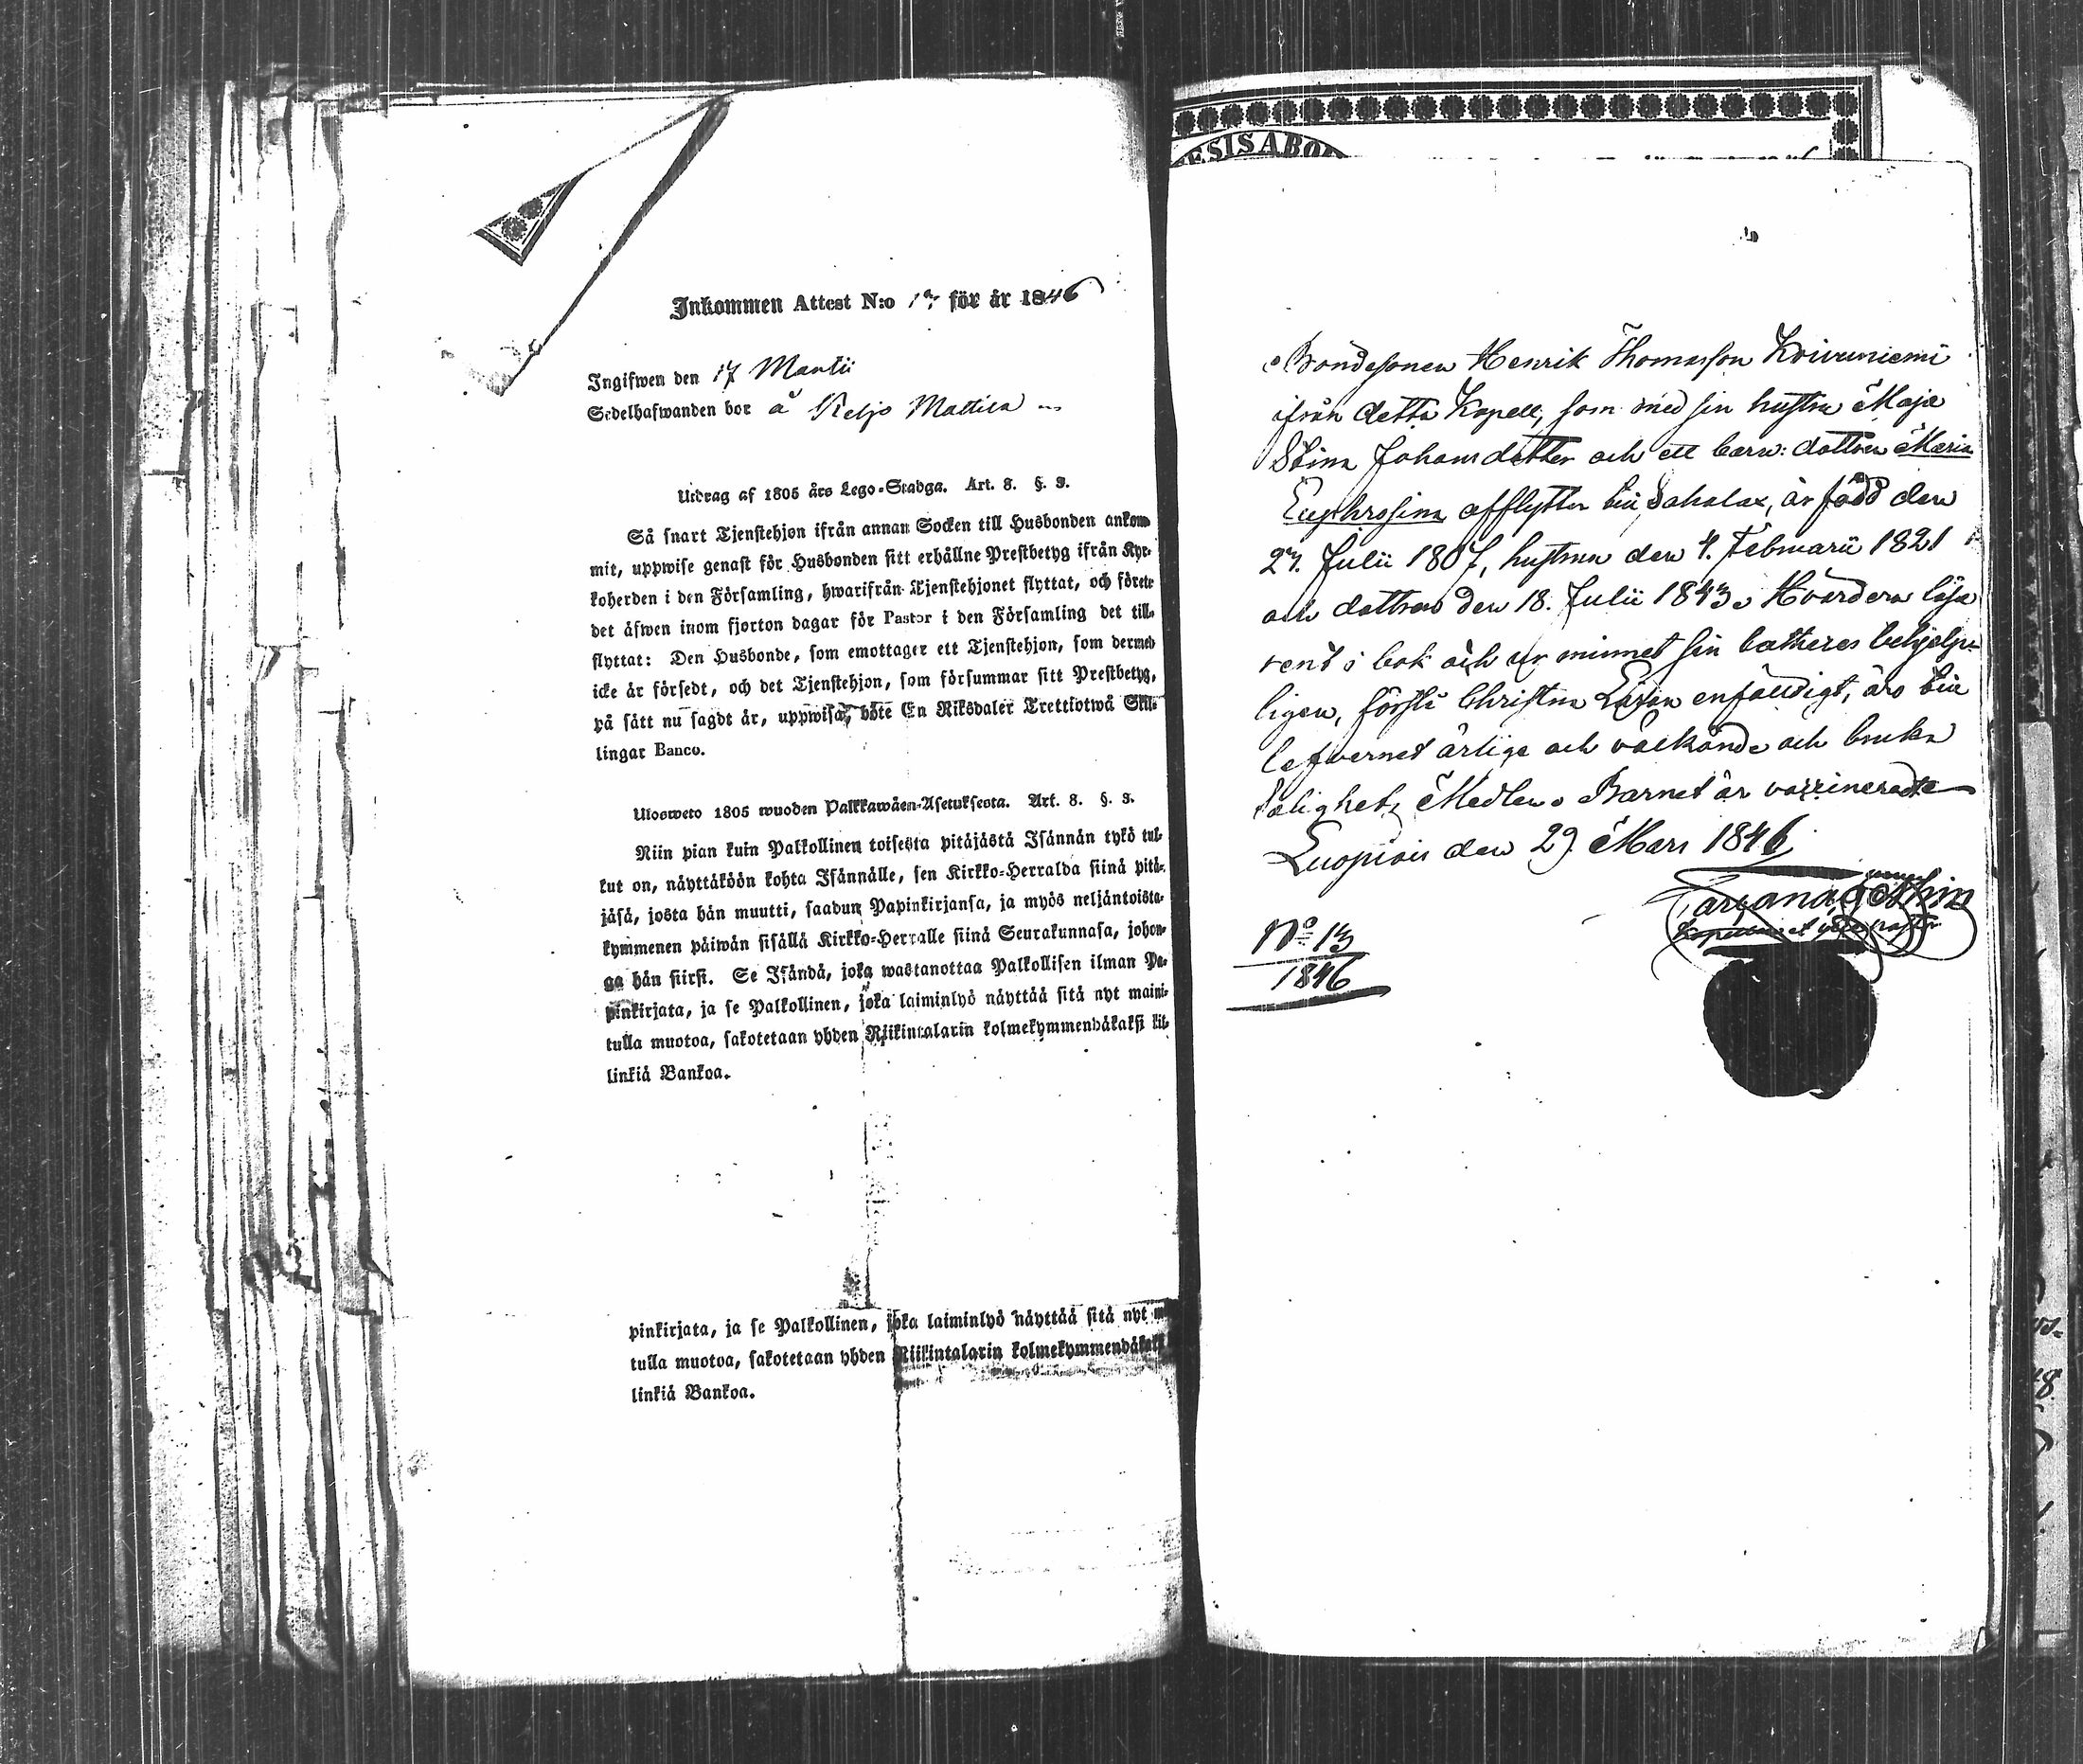 Inkommen Attest N:o 12 för år 1846
Ingifwen den 17 Martii
Sedelhafwanden bor å Keljo Mattila
Utdrag af 1805 års Lego-Stadga. Art. 8. §. 3.
Så snart Tjenstehjon ifrån annan Socken till Husbonden ankom-
mit, uppwise genast för Husbonden sitt erhållne Prestbetyg ifrån Kyr-
koherden i den Församling, hwarifrån Tjenstehjonet flyttat, och förete
det äfwen inom fjorton dagar för Pastor i den Församling det till-
flyttat: Den Husbonde, som emottager ett Tjenstehjon, som dermed
icke är försedt, och det Tjenstehjon, som försummar sitt Prestbetyg,
på sätt nu sagdt är, uppwisa, böte En Riksdaler Trettiotwå Skil-
lingar Banco.
Ulosweto 1805 wuoden Palkkawäen-Asetuksesta. Art. 8. §. 3.
Niin pian kuin Palkollinen toisesta pitäjästä Isännän tykö tul-
kut on, näyttäköön kohta Isännälle, sen Kirkko-Herralda siinä pitä-
jäsä, josta hän muutti, saadun Papinkirjansa, ja myös neljäntoista-
kymmenen päiwän sisällä Kirkko-Herralle siinä Seurakunnasa, johon-
ga hän siirsi. Se Isändä, joka wastanottaa Palkollisen ilman Pa-
pinkirjata, ja se Palkollinen, joka laiminlyö näyttää sitä nyt maini-
tulla muotoa, sakotetaan yhden Riikintalarin kolmekymmendäkaksi kil-
linkiä Bankoa.
pinkirjata, ja se Palkollinen, joka laiminlyö näyttää sitä nyt m
tulla muotoa, sakotetaan yhden Riikintalarin kolmekymmendäkaksi
linkiä Bankoa.
ESIS ABO
Bondesonen Henrik Thomasson Koivuniemi
ifrån detta Kapell, som med sin hustru Maja
Stina Johansdotter och ett barn: dottren Maria
Euphrosina afflyttar till Sahalax, är född den
27. Julii 1807, hustrun den 4. Februarii 1821
och dottren den 18. Julii 1843. Hvardera läsa
rent i bok och ur minnet sin catheches behjelp-
ligen, förstå Christna Läran enfaldigt, äro till
lefvernet ärlige och välkände och bruka
Salighets Medlen. Barnet är vaccineradt
Luopiois den 2 Mars 1846
No 13
1846